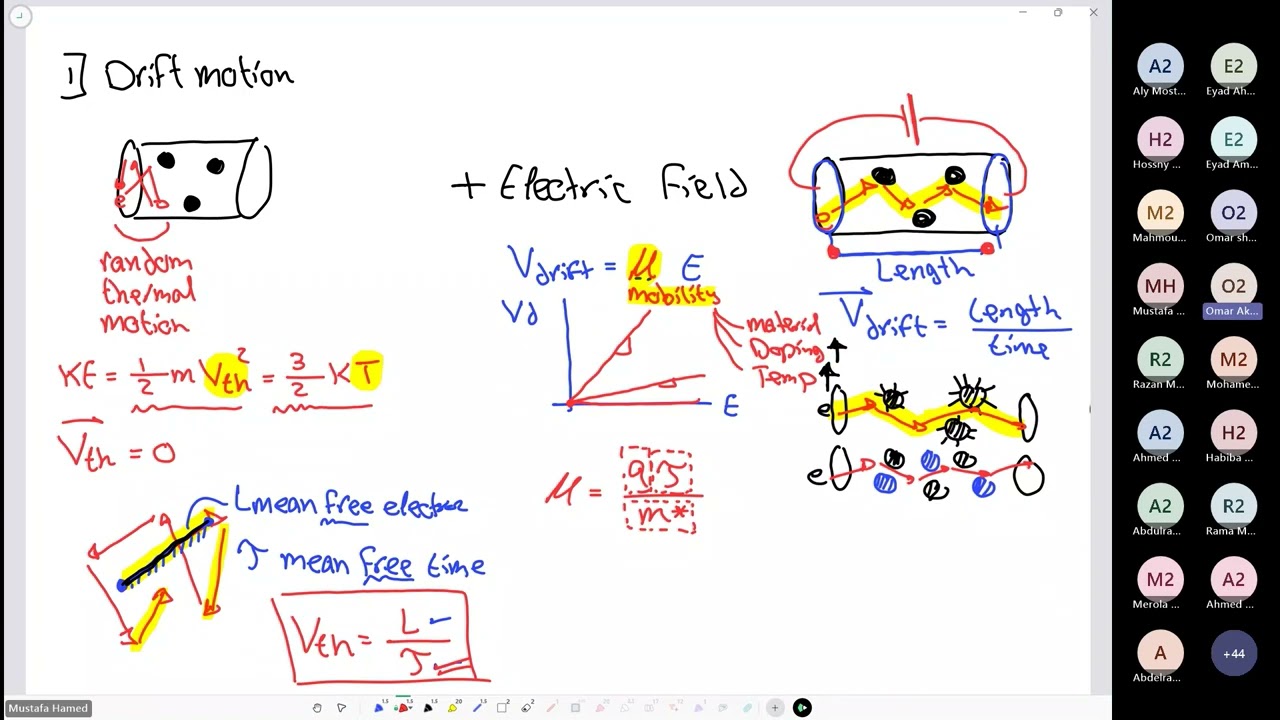 1] Drift motion
e
random
thermal
motion
KE = 1/2 m Vth² = 3/2 K T
Vth = 0
Lmean free electroe
τ mean free time
Vth = L/τ
+ Electric Field
Vdrift = μ E
mobility
material
Doping ↑
Temp ↑
Vd
E
μ = qτ/m*
e
Length
Vdrift = Length/time
e
e
A2
Aly Most...
E2
Eyad Ah...
H2
Hossny ...
E2
Eyad Am...
M2
Mahmou...
O2
Omar sh...
MH
Mustafa ...
O2
Omar Ak...
R2
Razan M...
M2
Mohame...
A2
Ahmed ...
H2
Habiba ...
A2
Abdulra...
R2
Rama M...
M2
Merola ...
A2
Ahmed ...
A
Abdelra...
+44
Mustafa Hamed